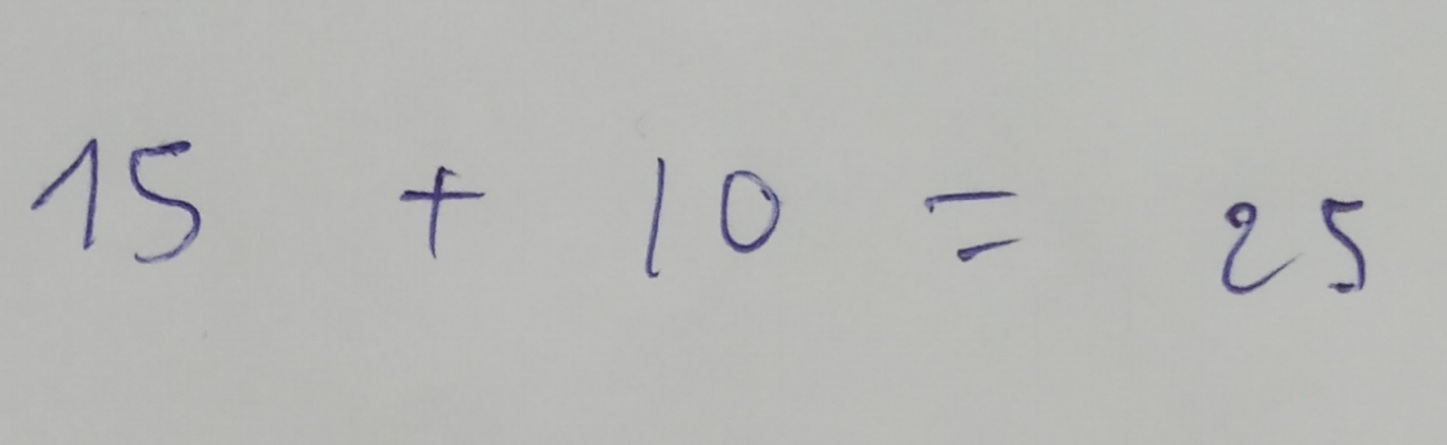 15 + 10 = 25